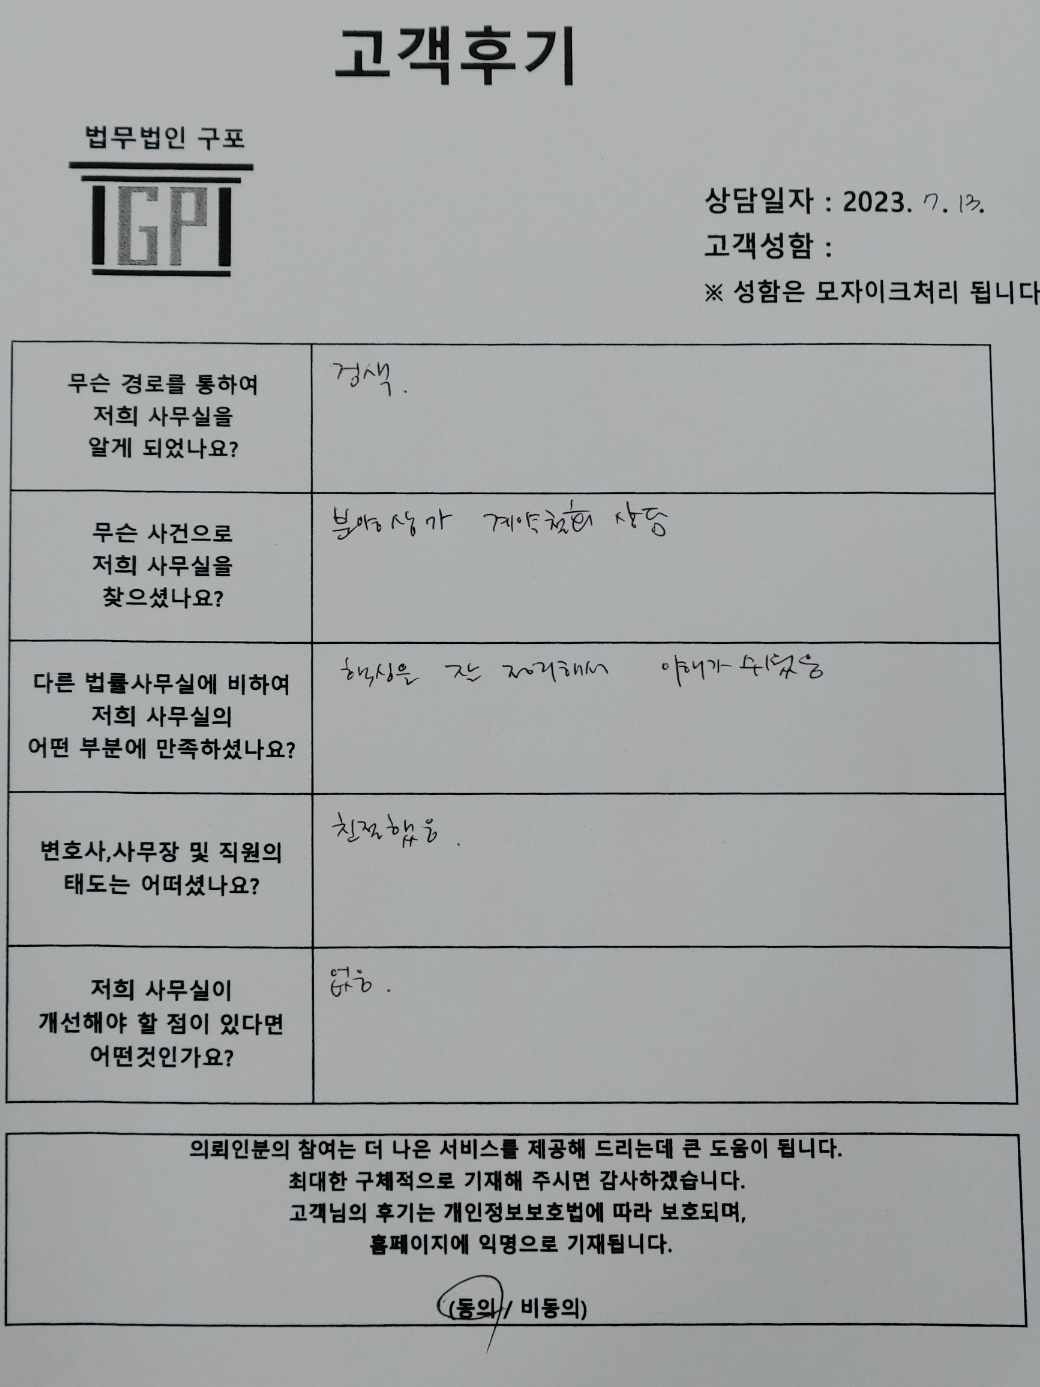 고객후기
법무법인 구포
GP
상담일자 : 2023. 7. 13.
고객성함 :
※ 성함은 모자이크처리 됩니다
무슨 경로를 통하여
저희 사무실을
알게 되었나요?
검색.
무슨 사건으로
저희 사무실을
찾으셨나요?
분양상가 계약철회 상담
다른 법률사무실에 비하여
저희 사무실의
어떤 부분에 만족하셨나요?
핵심을 잘 정리해서 이해가 쉬웠음
변호사,사무장 및 직원의
태도는 어떠셨나요?
친절했음.
저희 사무실이
개선해야 할 점이 있다면
어떤것인가요?
없음.
의뢰인분의 참여는 더 나은 서비스를 제공해 드리는데 큰 도움이 됩니다.
최대한 구체적으로 기재해 주시면 감사하겠습니다.
고객님의 후기는 개인정보보호법에 따라 보호되며,
홈페이지에 익명으로 기재됩니다.
(동의 / 비동의)